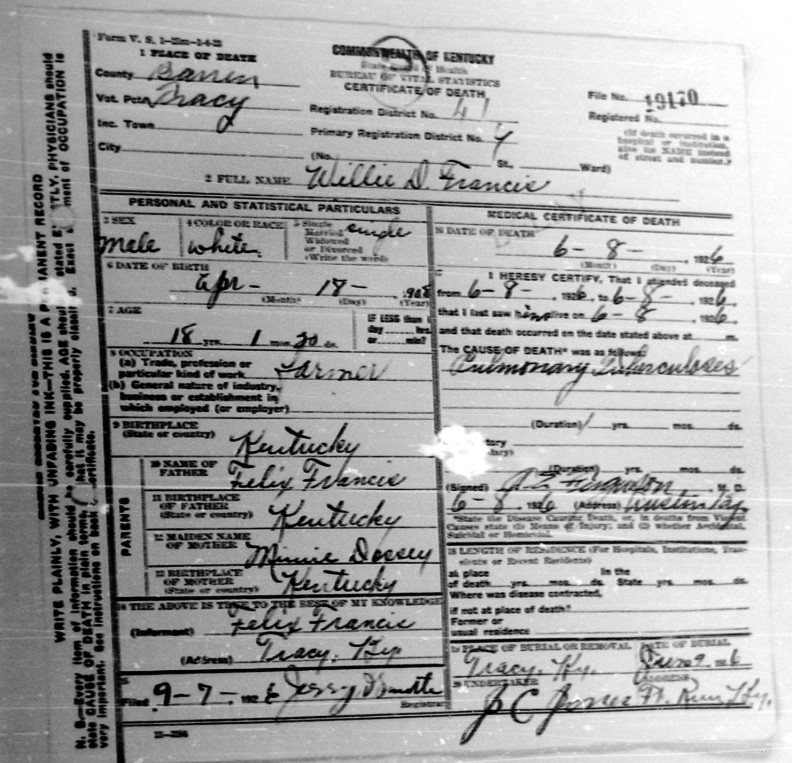 Form V. S. 1-25m-1-6-25
1 PLACE OF DEATH
County Barren
Vot. Pct. Tracy
Inc. Town
City
COMMONWEALTH OF KENTUCKY
State Board of Health
BUREAU OF VITAL STATISTICS
CERTIFICATE OF DEATH
Registration District No. 41
Primary Registration District No.
(No. St., Ward)
File No. 19170
Registered No.
(If death occurred in a
hospital or institution,
give its NAME instead
of street and number.)
2 FULL NAME Willie D. Francis
PERSONAL AND STATISTICAL PARTICULARS
3 SEX
male
4 COLOR OR RACE
white
5 Single
Married
Widowed
or Divorced
(Write the word)
single
6 DATE OF BIRTH
Apr- 18- 1908
(Month) (Day) (Year)
7 AGE
18 yrs. 1 mos. 20 ds.
IF LESS than 1
day hrs.
or min?
8 OCCUPATION
(a) Trade, profession or
particular kind of work Farmer
(b) General nature of industry,
business or establishment in
which employed (or employer)
9 BIRTHPLACE
(State or country) Kentucky
PARENTS
10 NAME OF
FATHER Felix Francis
11 BIRTHPLACE
OF FATHER
(State or country) Kentucky
12 MAIDEN NAME
OF MOTHER Minnie Dossey
13 BIRTHPLACE
OF MOTHER
(State or country) Kentucky
14 THE ABOVE IS TRUE TO THE BEST OF MY KNOWLEDGE
(Informant) Felix Francis
(Address) Tracy, Ky
15
Filed 9-7- 1926 Jessy
Registrar
MEDICAL CERTIFICATE OF DEATH
16 DATE OF DEATH
6- 8- , 1926
(Month) (Day) (Year)
I HEREBY CERTIFY, That I attended deceased
from 6-8-, 1926, to 6-8-, 1926,
that I last saw him alive on 6-8, 1926,
and that death occurred on the date stated above at m.
The CAUSE OF DEATH* was as follows:
Pulmonary Tuberculoses
(Duration) yrs. mos. ds.
(Duration) yrs. mos. ds.
(Signed) Ferguson, M. D.
6-8-, 1926 (Address) Austin Ky.
*State the Disease Causing Death, or, in deaths from Violent
Causes state (1) Means of Injury; and (2) whether Accidental,
Suicidal or Homicidal.
18 LENGTH OF RESIDENCE (For Hospitals, Institutions, Tran-
sients or Recent Residents)
At place In the
of death yrs. mos. ds. State yrs. mos. ds.
Where was disease contracted,
if not at place of death?
Former or
usual residence
19 PLACE OF BURIAL OR REMOVAL DATE OF BURIAL
Tracy, Ky. June 9 1926
20 UNDERTAKER ADDRESS
J C Jones Ky.
WRITE PLAINLY, WITH UNFADING INK—THIS IS A PERMANENT RECORD
N. B.—Every item of information should be carefully supplied. AGE should be stated EXACTLY. PHYSICIANS should
state CAUSE OF DEATH in plain terms, that it may be properly classified. Exact statement of OCCUPATION is
very important. See instructions on back of certificate.